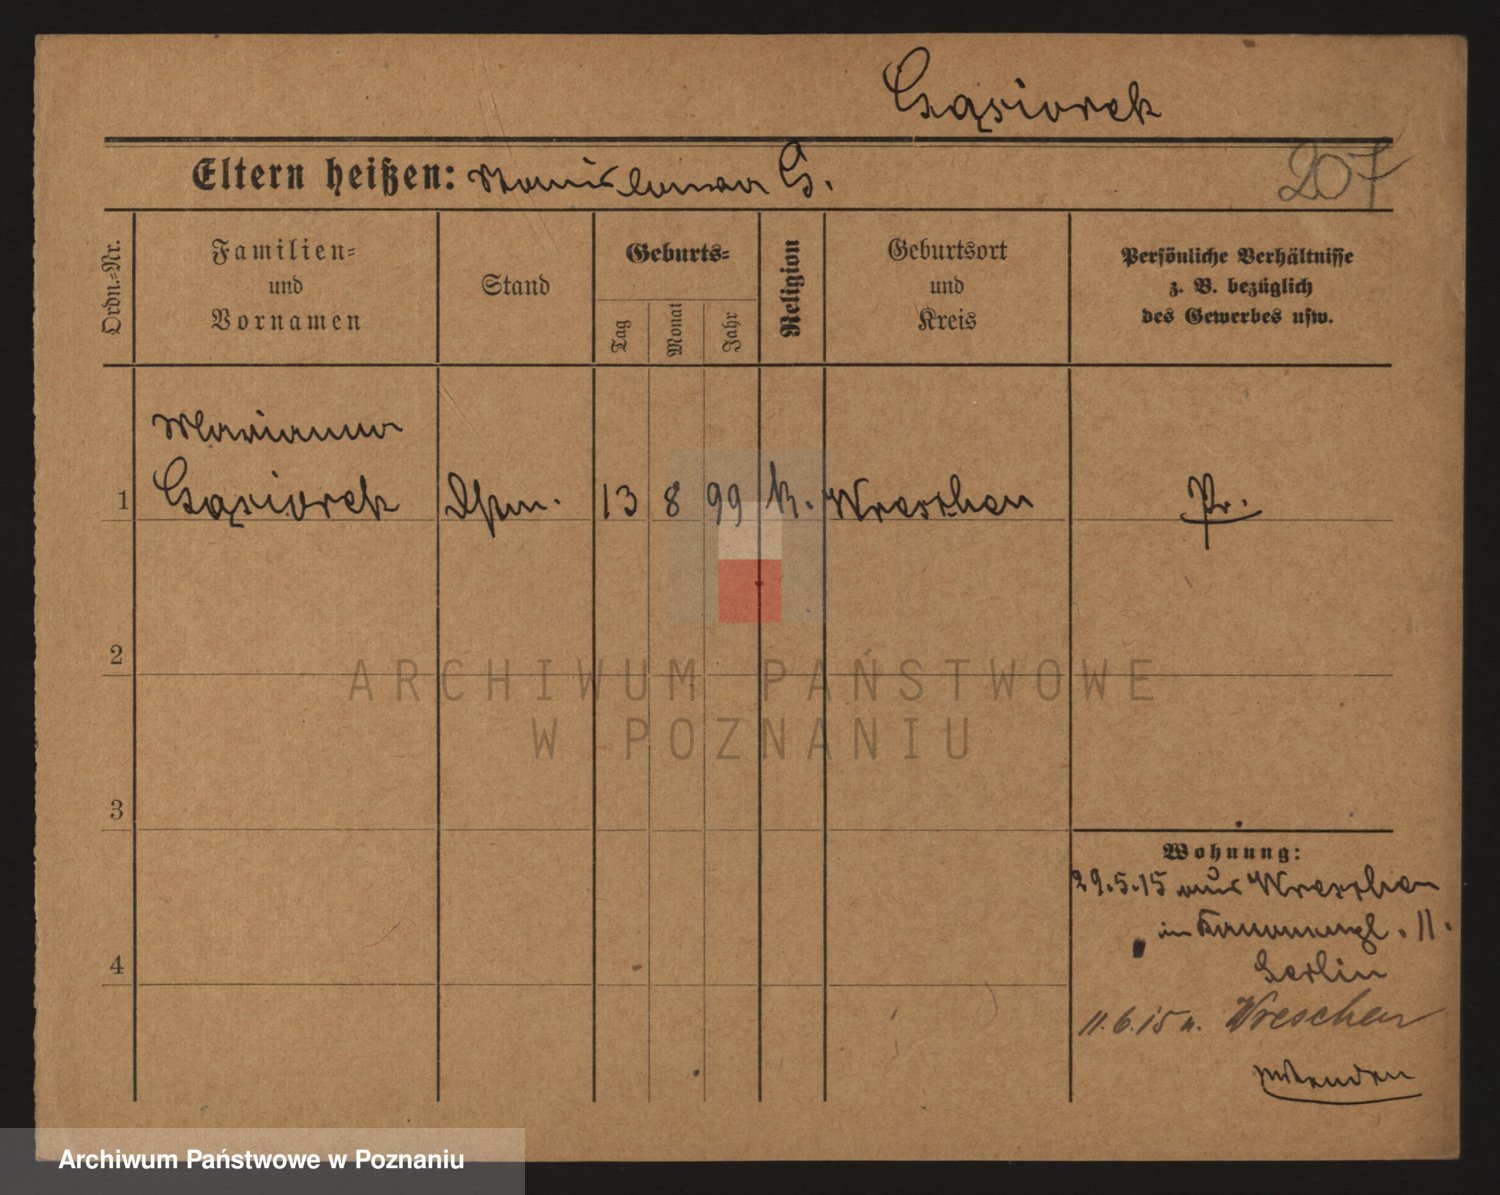 Gąsiorek
Eltern heißen: Stanislawa G.
207
Ordn.=Nr.
Familien=
und
Vornamen
Stand
Geburts=
Tag
Monat
Jahr
Religion
Geburtsort
und
Kreis
Persönliche Verhältnisse
z. B. bezüglich
des Gewerbes usw.
Marianna
1 Gąsiorek 13 8 99 k. Wreschen Pr.
2
ARCHIWUM PAŃSTWOWE
W POZNANIU
3
Wohnung:
29.5.15 aus Wreschen
11.
Berlin
4
11.6.15 n. Wreschen
Archiwum Państwowe w Poznaniu